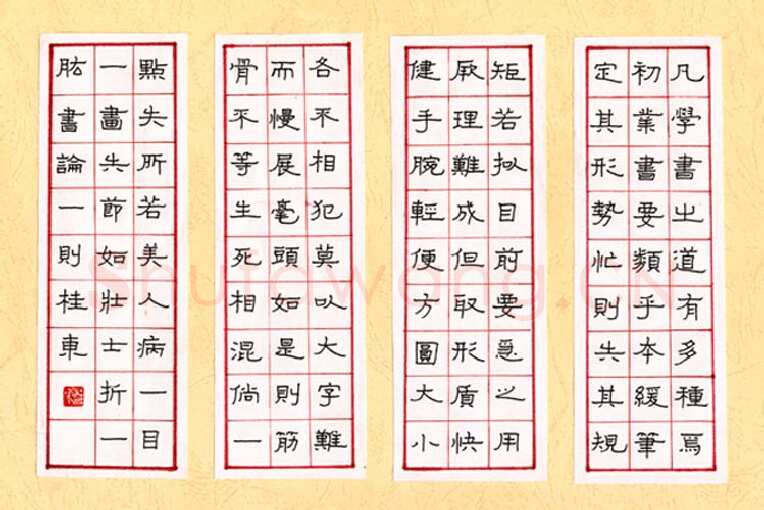 凡學書之道有多種焉
初業書要類乎本緩筆
定其形勢忙則失其規
矩若拟目前要急之用
厥理難成但取形質快
健手腕輕便方圓大小
各不相犯莫以大字難
而慢展毫頭如是則筋
骨不等生死相混倘一
點失所若美人病一目
一畫失節如壯士折一
肱書論一則桂東
Shufawong.CN